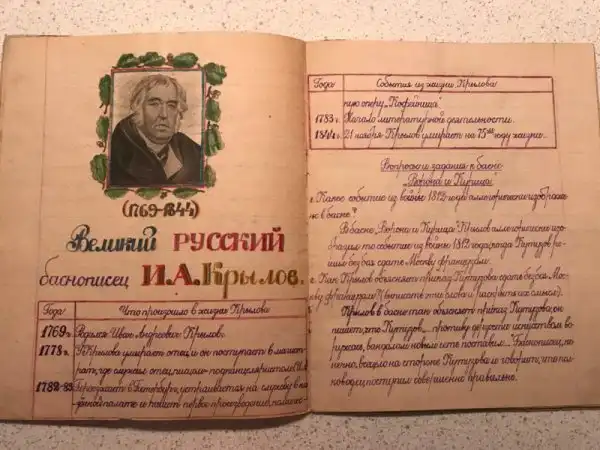 (1769-1844)
Великий РУССКИЙ
баснописец И.А. Крылов.
Года Что произошло в жизни Крылова
1769г. Родился Иван Андреевич Крылов.
1778г. У Крылова умирает отец и он поступает в магист-
рат, где служил отец, писцом
1782-83 Переезжает в Петербург, устраивается на службу в ка-
зённой палате и пишет первое произведение,
Года События из жизни Крылова
ную оперу „Кофейница"
1783г. Начало литературной деятельности.
1844г. 21 ноября Крылов умирает на 75ом году жизни.
Вопросы и задания к басне
„Ворона и Курица".
Какое событие из войны 1812 года аллегорически изображе-
но в басне?
В басне „Ворона и Курица" Крылов аллегорически изо-
бразил то событие из войны 1812 года, когда Кутузов ре-
шил без боя сдать Москву французам.
Как Крылов объясняет приказ Кутузова сдать без боя Мос-
кву французам? (выпишите эти слова и раскройте их смысл).
Крылов в басне так объясняет приказ Кутузова, он
пишет, что Кутузов „ противу дерзости искусством во-
оружась, вандалам новым сеть поставил..." Баснописец, ко-
нечно, встал на сторону Кутузова и говорит, что пол-
ководец поступил совершенно правильно.